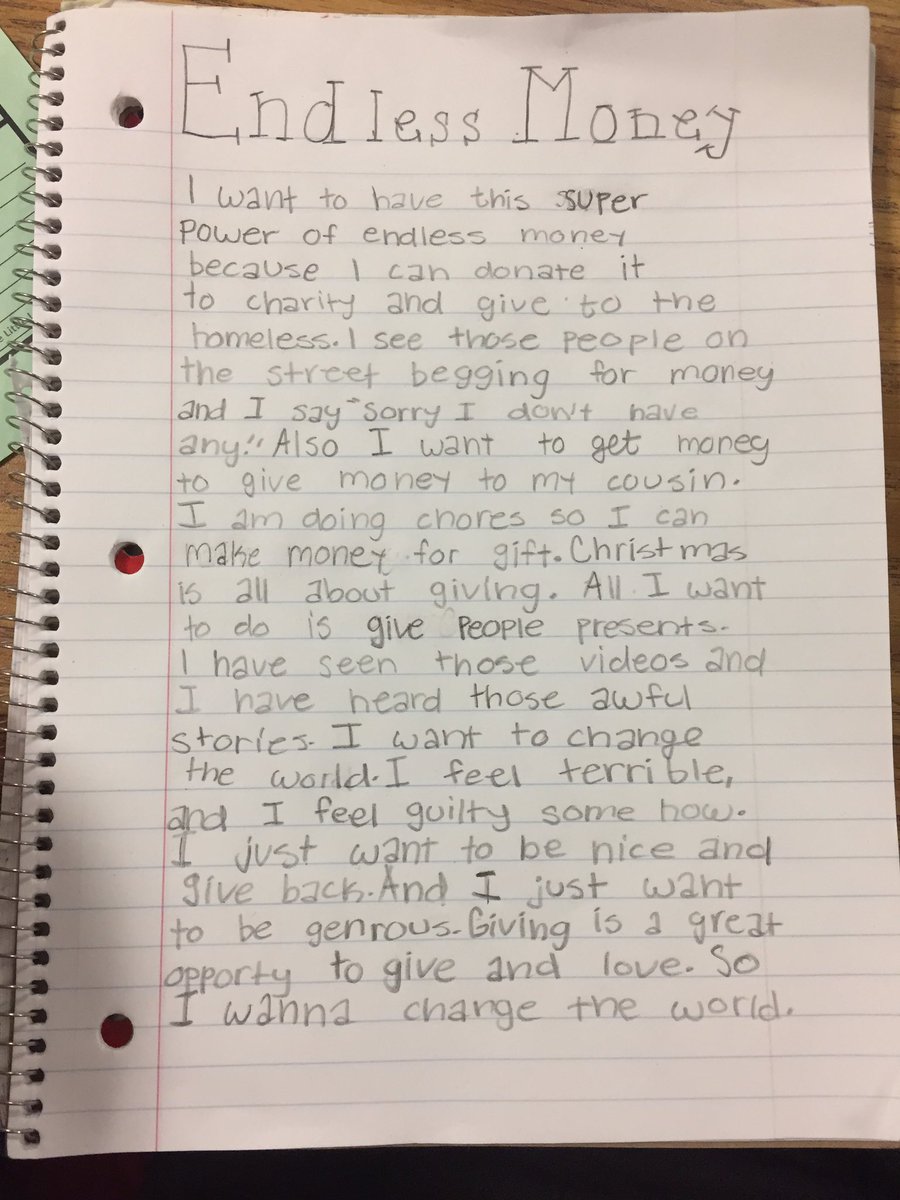 Endless Money
I want to have this super
power of endless money
because I can donate it
to charity and give to the
homeless. I see those people on
the street begging for money
and I say "Sorry I don't have
any." Also I want to get money
to give money to my cousin.
I am doing chores so I can
make money for gift. Christmas
is all about giving. All I want
to do is give people presents.
I have seen those videos and
I have heard those awful
stories. I want to change
the world. I feel terrible,
and I feel guilty some how.
I just want to be nice and
give back. And I just want
to be genrous. Giving is a great
opporty to give and love. So
I wanna change the world.